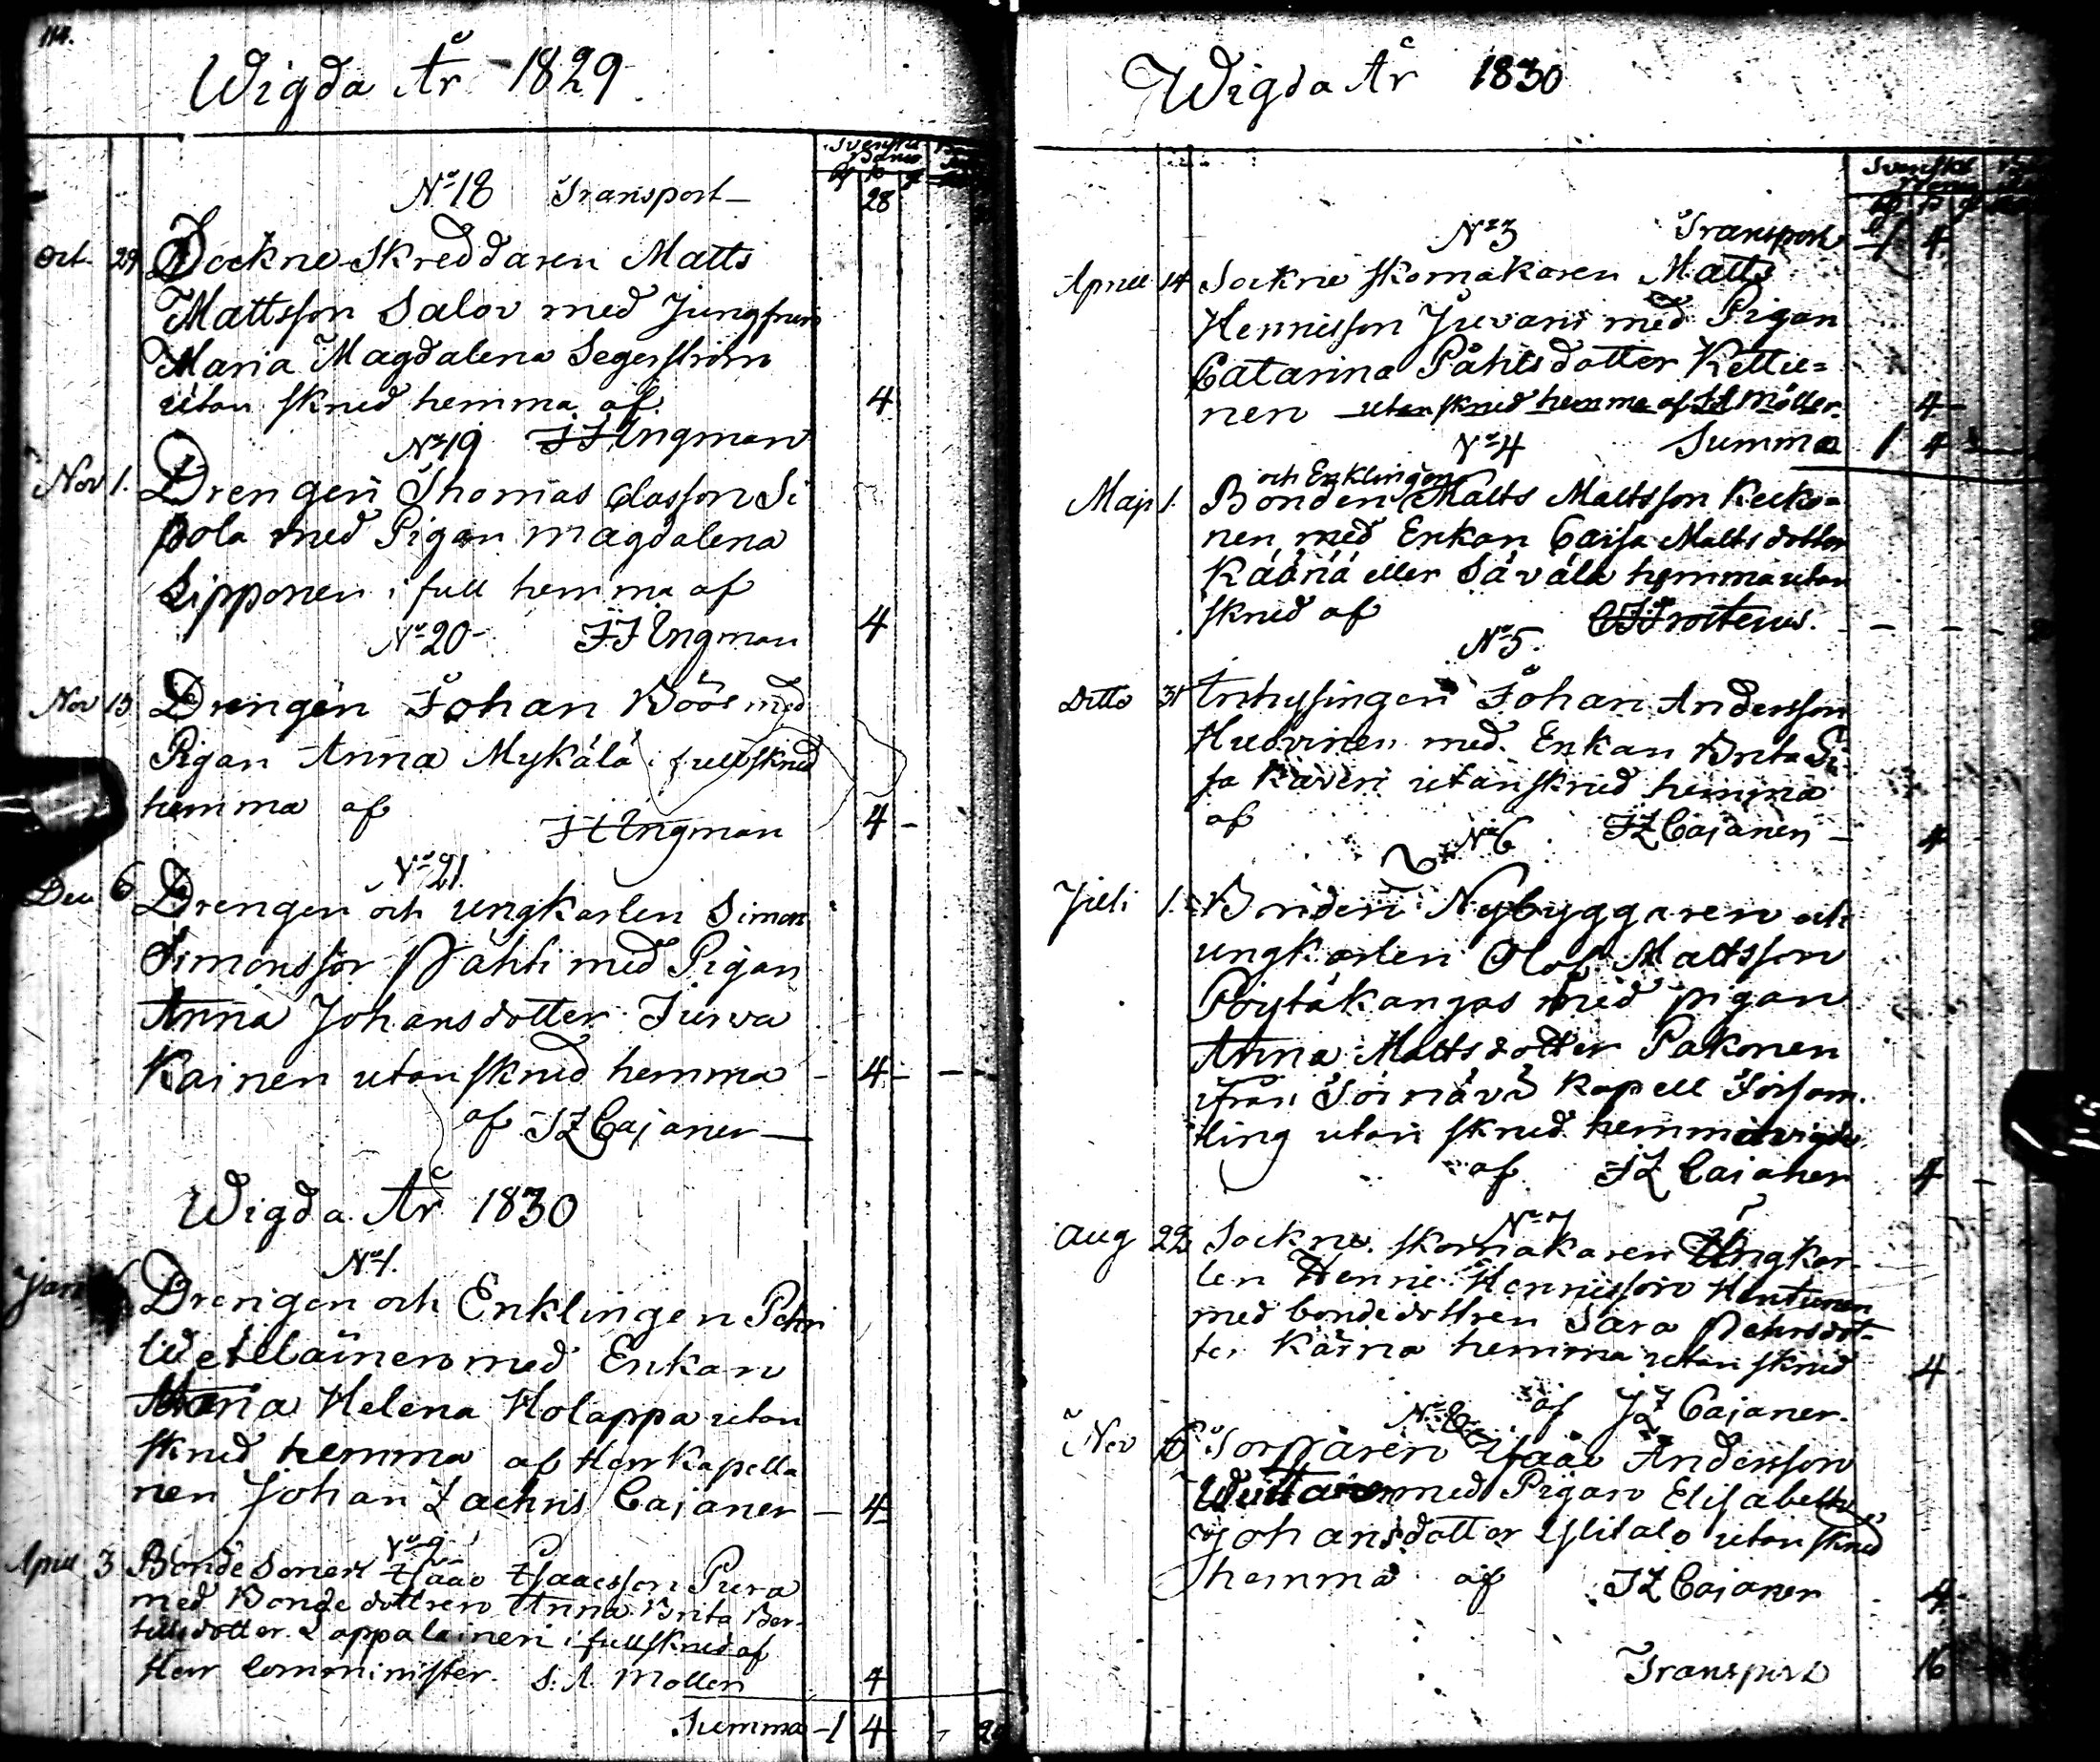 114.
Wigda År 1829
Svenska Banco
N:o 18 Transport 28
Oct. 29 Sockne Skreddaren Matts
Mattsson Salov med Jungfrun
Maria Magdalena Segerström
utan skrud hemma af 4
N:o 19 JJ Ungman
Nov 1. Drengen Thomas Classon Si
pola med Pigan Magdalena
Lipponen i full hemma af
N:o 20 JJ Ungman 4
Nov 15 Drengen Johan Böös med
Pigan Anna Mykälä i full skrud
hemma af JJ Ungman 4 -
N:o 21
Dec 6 Drengen och ungkarlen Simon
Simonsson Påhti med Pigan
Anna Johansdotter Jurva
Kainen utan skrud hemma - 4 -
af JZ Cajaner
Wigda År 1830
N:o 1.
Jan Drengen och Enklingen Pehr
Weteläinen med Enkan
Maria Helena Holappa utan
skrud hemma af Herr Kapella
nen Johan Zachris Cajaner - 4
N:o 2
Aprill 3 Bonde Sonen Isaac Isaacsson Pura
med Bonde dottren Anna Brita Ber-
tillsdotter Lappalainen i full skrud af
Herr Comminister S. A. Mollen 4
Summa - 1 4
Wigda År 1830
Svenska Banco
N:o 3 Transport 1 4
Aprill 14 Sockne Skomakaren Matts
Hennisson Juvani med Pigan
Catarina Påhlsdotter Kettu=
nen utan skrud hemma af SA Möller 4 -
N:o 4 Summa 1 4
och Enklingen
Maji 1. Bonden Matts Mattsson Keko=
nen med Enkan Caisa Mattsdotter
Käänä eller Säválä hemma utan
skrud af Frosterus. - - -
N:o 5.
Ditto 31 Inhysingen Johan Andersson
Huovinen med Enkan Brita Li
sa Kaveri utan skrud hemma
af JZ Cajanen - 4
N:o 6
Juli 1. Bonden Nybyggaren och
ungkarlen Olof Mattsson
Pöytäkangas med pigan
Anna Mattsdotter Pakonen
från Soinävä Kapell Församling
utan skrud hemma vigde
af JZ Cajaner 4 -
N:o 7
Aug 22 Sockne skomakaren Ungkar-
len Henric Hennisson Hentunen
med bondedottren Sara Pehrsdot-
ter Kärna hemma utan skrud 4
af JZ Cajaner.
N:o 8
Nov 6 Torparen Isaac Andersson
med Pigan Elisabeth
Johansdotter Ylitalo utan skrud
hemma af JZ Cajaner 4
Transport 16